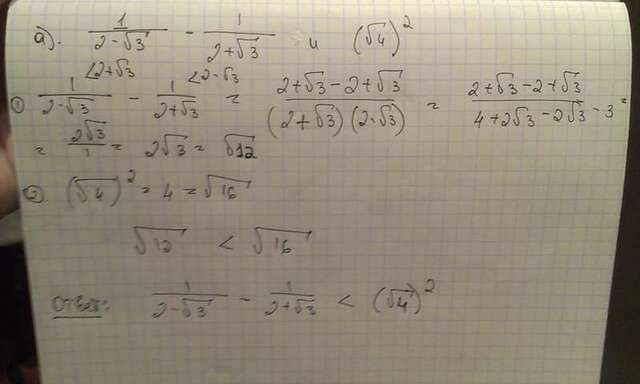 а). 1/(2-√3) - 1/(2+√3) и (√4)²
① 1/(2-√3) <2+√3 - 1/(2+√3) <2-√3 = (2+√3-2+√3)/((2+√3)(2-√3)) = (2+√3-2+√3)/(4+2√3-2√3-3) =
= 2√3/1 = 2√3 = √12
② (√4)² = 4 = √16
√12 < √16
Ответ: 1/(2-√3) - 1/(2+√3) < (√4)²